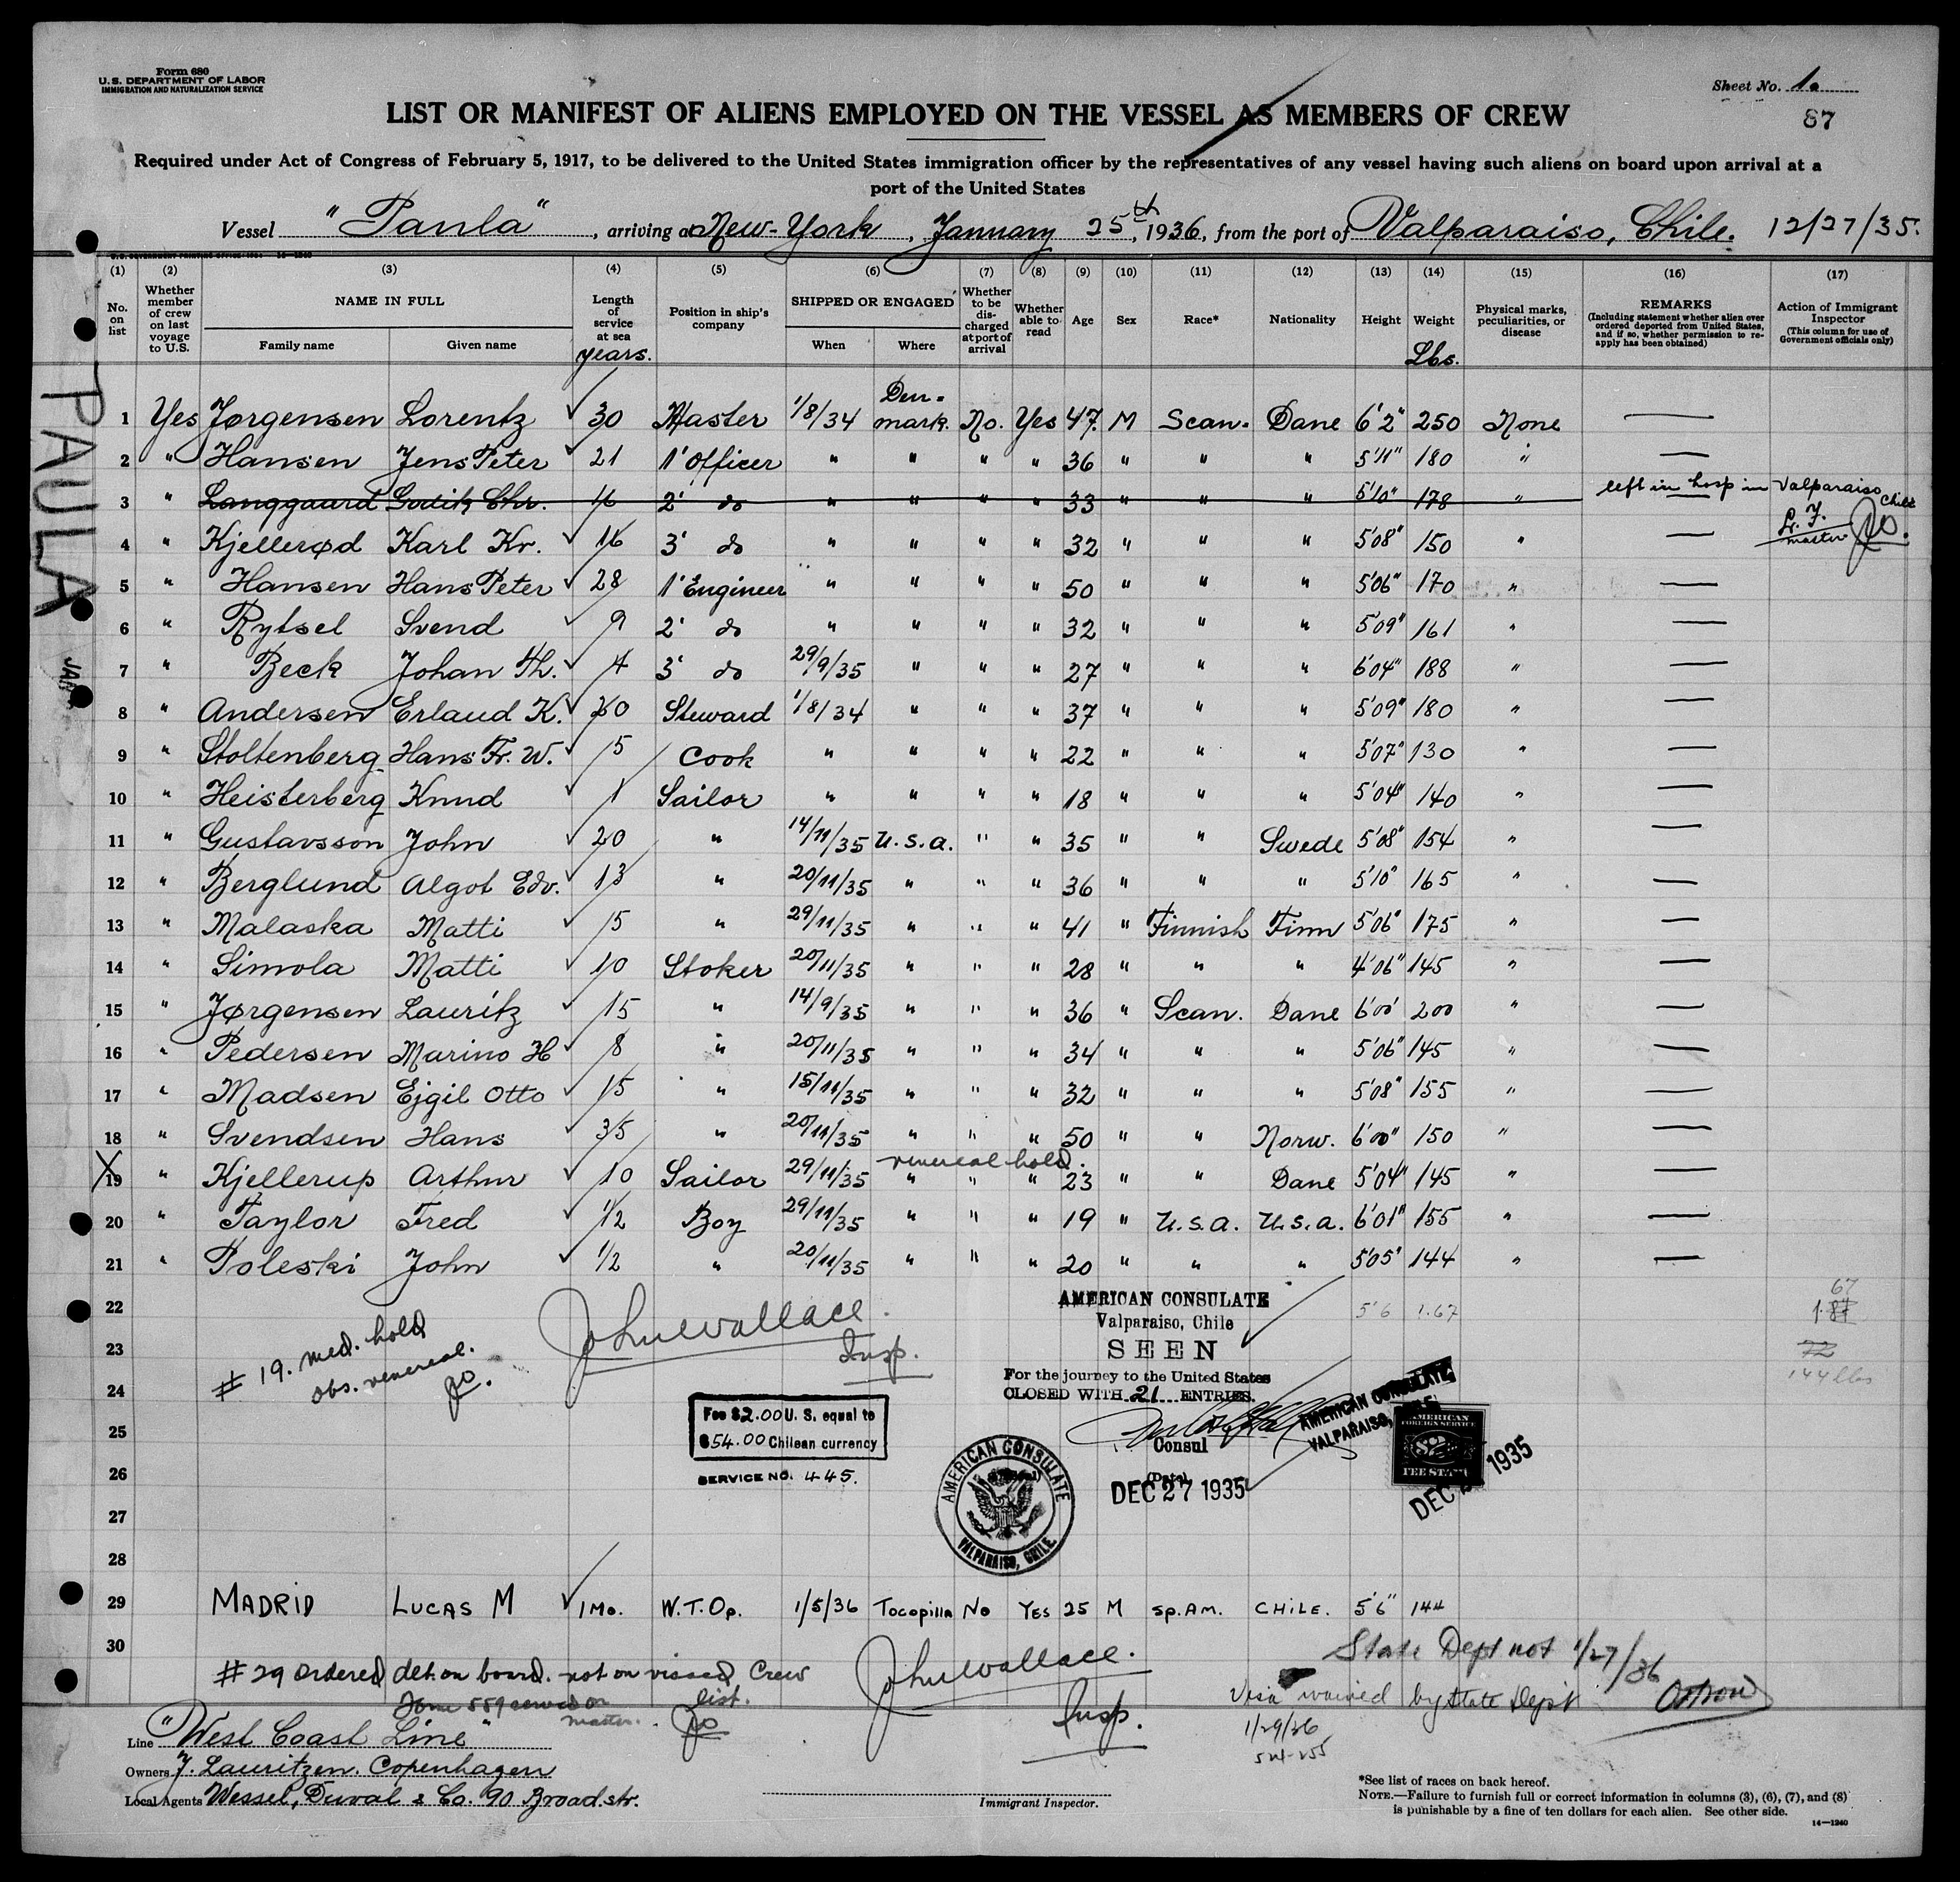 Form 680
U.S. DEPARTMENT OF LABOR
IMMIGRATION AND NATURALIZATION SERVICE
Sheet No. 1a
87
LIST OR MANIFEST OF ALIENS EMPLOYED ON THE VESSEL AS MEMBERS OF CREW
Required under Act of Congress of February 5, 1917, to be delivered to the United States immigration officer by the representatives of any vessel having such aliens on board upon arrival at a
port of the United States
Vessel "Paula", arriving at New-York, January 25th, 1936, from the port of Valparaiso, Chile. 12/27/35.
(1) (2) (3) (4) (5) (6) (7) (8) (9) (10) (11) (12) (13) (14) (15) (16) (17)
No. on list
Whether member of crew on last voyage to U.S.
NAME IN FULL
Family name Given name
Length of service at sea
years.
Position in ship's company
SHIPPED OR ENGAGED
When Where
Whether to be discharged at port of arrival
Whether able to read
Age
Sex
Race*
Nationality
Height
Weight
Lbs.
Physical marks, peculiarities, or disease
REMARKS
(Including statement whether alien ever ordered deported from United States, and if so, whether permission to reapply has been obtained)
Action of Immigrant Inspector
(This column for use of Government officials only)
PAULA
JAN
1 Yes Jørgensen Lorentz 30 Master 1/8/34 Den-mark. No. Yes 47. M Scan. Dane 6'2" 250 None —
2 " Hansen Jens Peter 21 1' Officer " " " " 36 " " " 5'11" 180 " —
3 " Langgaard Godik Chr. 16 2' do " " " " 33 " " " 5'10" 178 " — left in hosp in Valparaiso Chile
master
4 " Kjellerød Karl Kr. 16 3' do " " " " 32 " " " 5'08" 150 " —
5 " Hansen Hans Peter 28 1' Engineer " " " " 50 " " " 5'06" 170 " —
6 " Rytsel Svend 9 2' do " " " " 32 " " " 5'09" 161 " —
7 " Beck Johan Th. 4 3' do 29/9/35 " " " 27 " " " 6'04" 188 " —
8 " Andersen Erlaud K. 20 Steward 1/8/34 " " " 37 " " " 5'09" 180 " —
9 " Stoltenberg Hans Fr. W. 5 Cook " " " " 22 " " " 5'07" 130 " —
10 " Heisterberg Knud 1 Sailor " " " " 18 " " " 5'04" 140 " —
11 " Gustavsson John 20 " 14/11/35 U.S.a. " " 35 " " Swede 5'08" 154 " —
12 " Berglund Algot Edv. 13 " 20/11/35 " " " 36 " " " 5'10" 165 " —
13 " Malaska Matti 15 " 29/11/35 " " " 41 " Finnish Finn 5'06" 175 " —
14 " Simola Matti 10 Stoker 20/11/35 " " " 28 " " " 4'06" 145 " —
15 " Jørgensen Lauritz 15 " 14/9/35 " " " 36 " Scan. Dane 6'00' 200 " —
16 " Pedersen Marino H 8 " 20/11/35 " " " 34 " " " 5'06" 145 " —
17 " Madsen Ejgil Otto 15 " 15/11/35 " " " 32 " " " 5'08" 155 " —
18 " Svendsen Hans 35 " 20/11/35 " " " 50 " " Norw. 6'00" 150 " —
venereal hold.
19 " Kjellerup Arthur 10 Sailor 29/11/35 " " " 23 " " Dane 5'04" 145 " —
20 " Taylor Fred 1/2 Boy 29/11/35 " " " 19 " U.S.a. U.S.a. 6'01" 155 " —
21 " Poleski John 1/2 " 20/11/35 " " " 20 " " " 5'05" 144 " —
22
5'6 1.67
67
23
72
24
144 lbs
25
26
27
28
# 19. med. hold
obs. venereal.
John Wallace.
Insp.
AMERICAN CONSULATE
Valparaiso, Chile
SEEN
For the journey to the United States
CLOSED WITH 21 ENTRIES.
Consul
(Date)
DEC 27 1935
Fee $2.00 U. S. equal to
$54.00 Chilean currency
SERVICE NO. 445.
AMERICAN CONSULATE
VALPARAISO, CHILE
AMERICAN CONSULATE
VALPARAISO, CHILE
AMERICAN
FOREIGN SERVICE
$2
FEE STAMP
DEC 1935
29 MADRID LUCAS M 1 Mo. W.T.Op. 1/5/36 Tocopilla No YES 25 M Sp.Am. CHILE. 5'6" 144
30
# 29 Ordered det. on board. not on vissed Crew
list.
Form 559 served on
master.
John Wallace.
Insp.
State Dept not 1/27/36
Visa waived by State Dept
1/29/36
Line "West Coast Line"
Owners J. Lauritzen. Copenhagen
Local Agents Wessel, Duval & Co. 90 Broad str.
Immigrant Inspector.
*See list of races on back hereof.
NOTE.—Failure to furnish full or correct information in columns (3), (6), (7), and (8)
is punishable by a fine of ten dollars for each alien. See other side.
14—1240